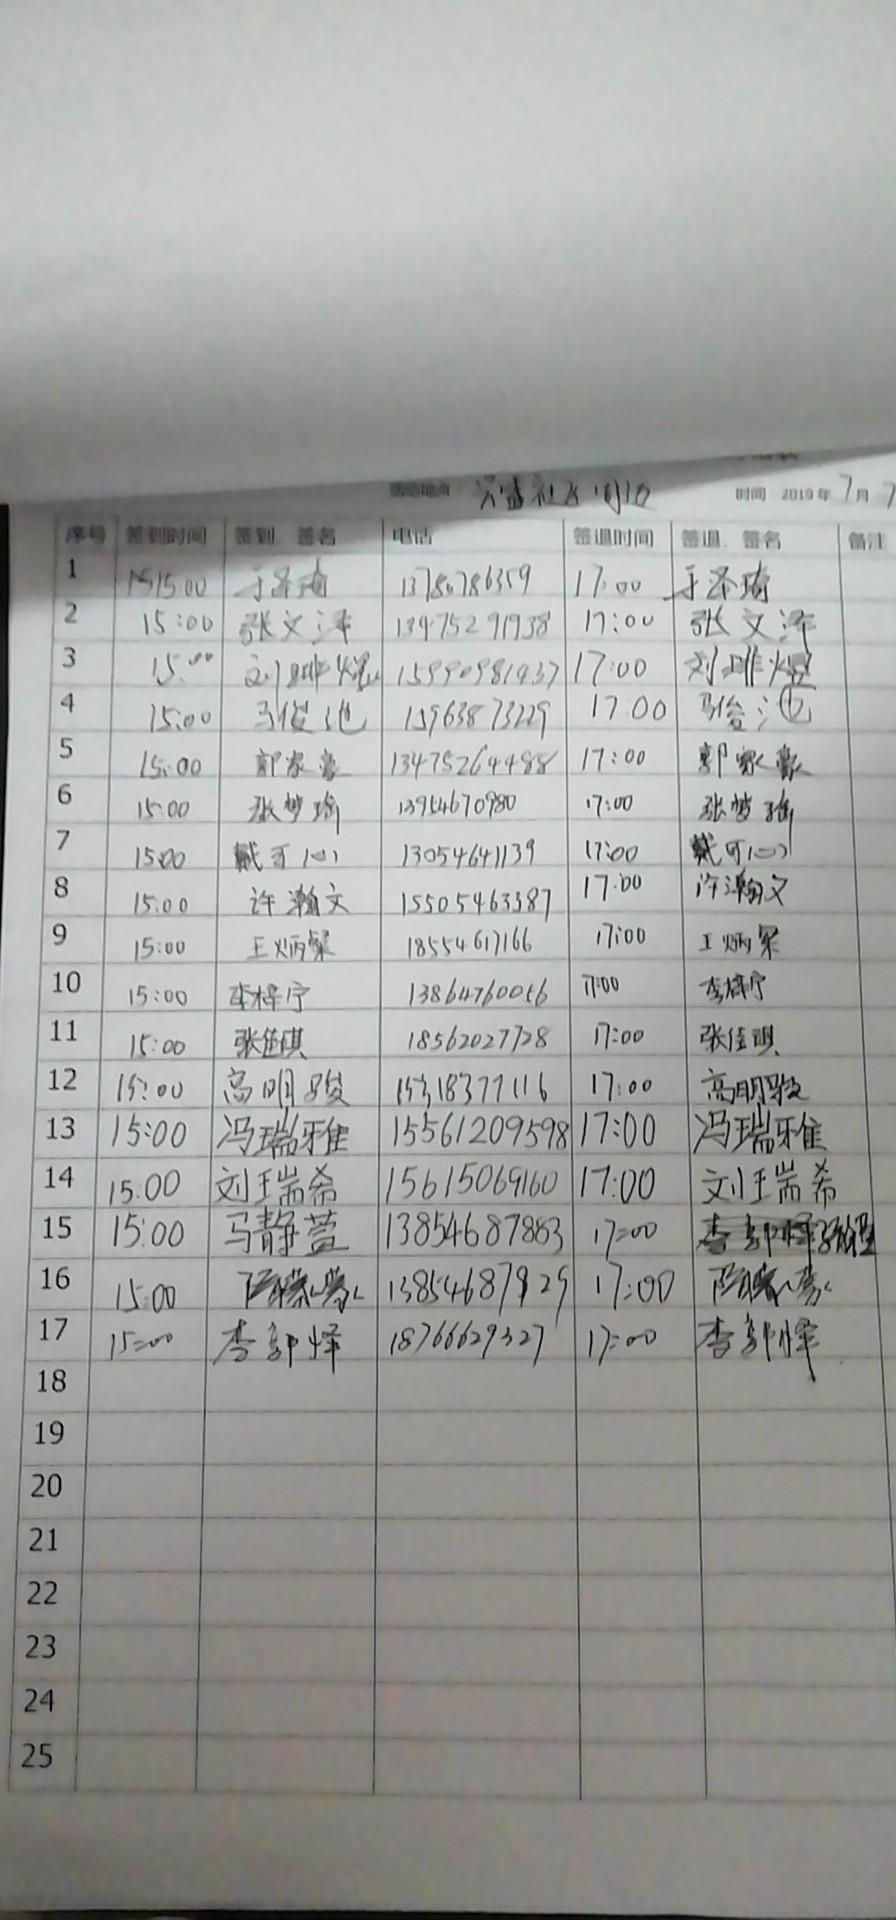 活动地点 时间 2019年7月7
序号 签到时间 签到、签名 电话 签退时间 签退、签名 备注
1 15:00 于泽琦 17:00 于泽琦
2 15:00 张文泽 13475291938 17:00 张文泽
3 15:00 刘 15990981437 17:00 刘
4 15:00 马俊池 15963873229 17:00 马俊池
5 15:00 郭家豪 13475264488 17:00 郭家豪
6 15:00 张梦瑜 13954670980 17:00 张梦瑜
7 15:00 戴可心 13054641139 17:00 戴可心
8 15:00 许瀚文 15505463387 17:00 许瀚文
9 15:00 王炳粲 18554617166 17:00 王炳粲
10 15:00 李梓宁 17:00 李梓宁
11 15:00 张佳琪 18562027728 17:00 张佳琪
12 15:00 高明骏 15318377116 17:00 高明骏
13 15:00 冯瑞雅 15561209598 17:00 冯瑞雅
14 15:00 刘瑞希 15615069160 17:00 刘瑞希
15 15:00 马静萱 13854687883 17:00
16 15:00 17:00
17 15:00 李 18766629327 17:00 李
18
19
20
21
22
23
24
25